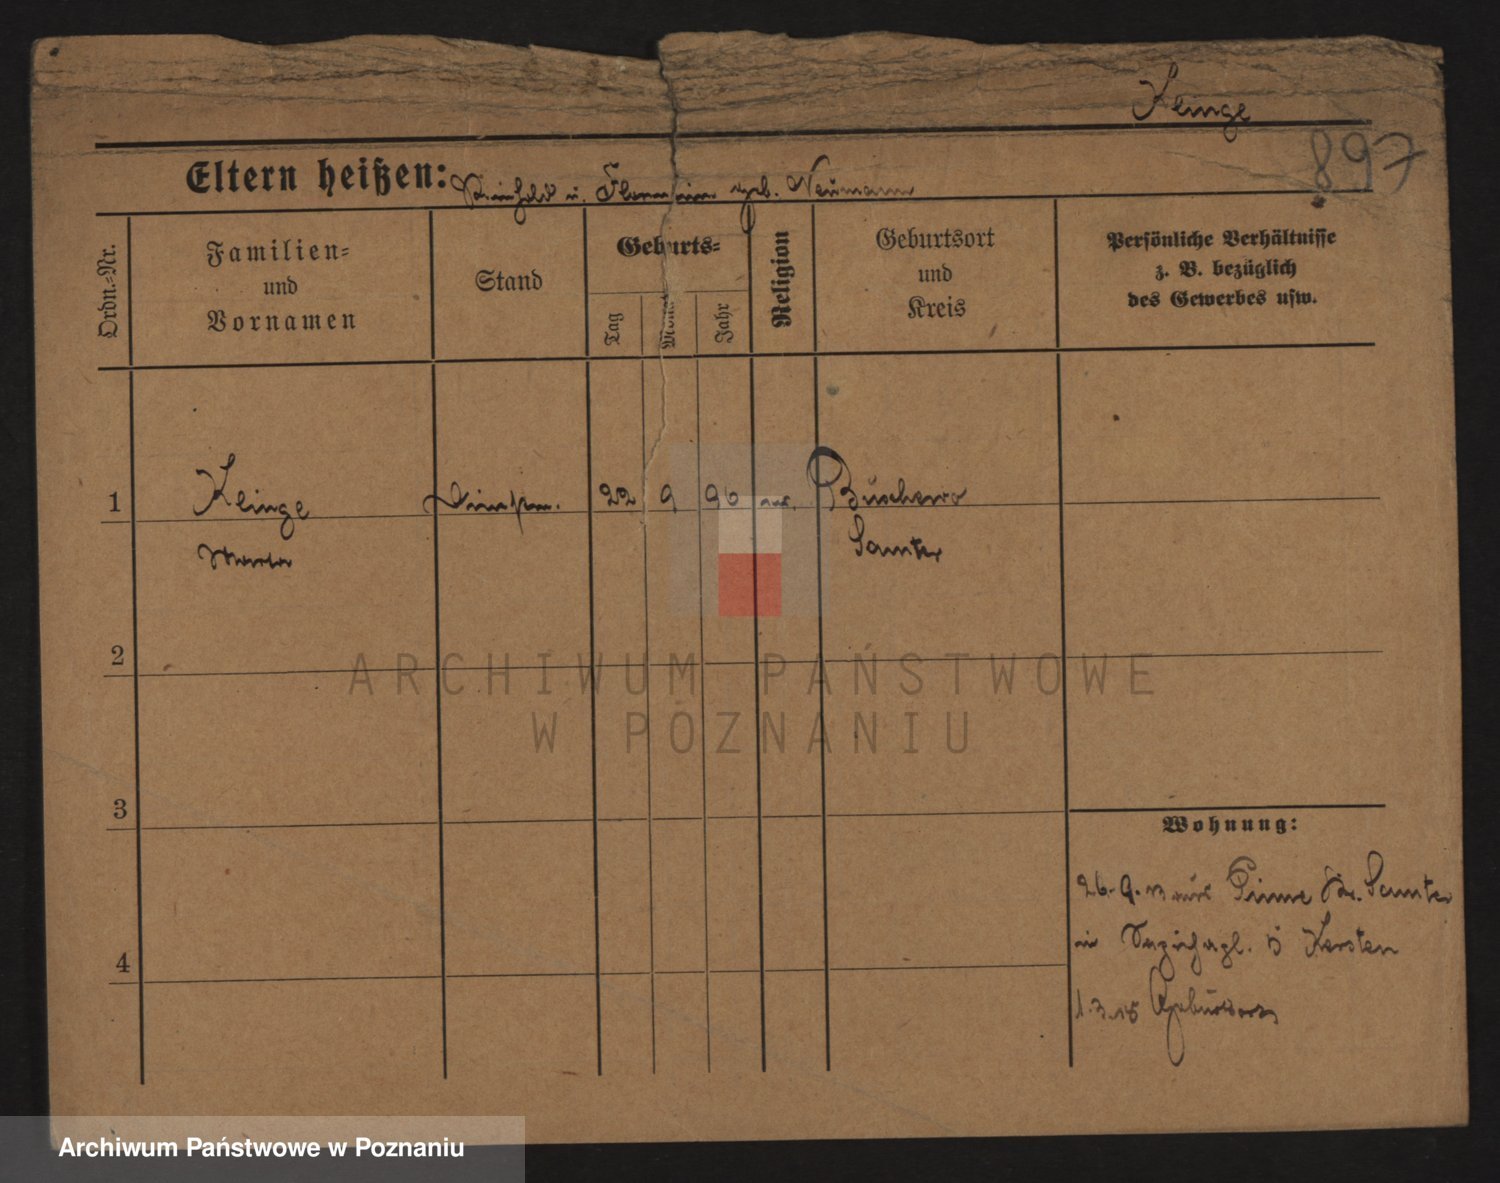 Kleinge
897
Eltern heißen: Reinhold u. geb. Neumann
Ordn.-Nr.
Familien-
und
Vornamen
Stand
Geburts-
Tag
Monat
Jahr
Religion
Geburtsort
und
Kreis
Persönliche Verhältnisse
z. B. bezüglich
des Gewerbes usw.
1
Kleinge
22 9 96
Buschewo
Samter
2
3
4
Wohnung:
26. 9. 13 aus Pinne Kr. Samter
Kersten
1. 3. 18 Geburtsort
ARCHIWUM PAŃSTWOWE
W POZNANIU
Archiwum Państwowe w Poznaniu